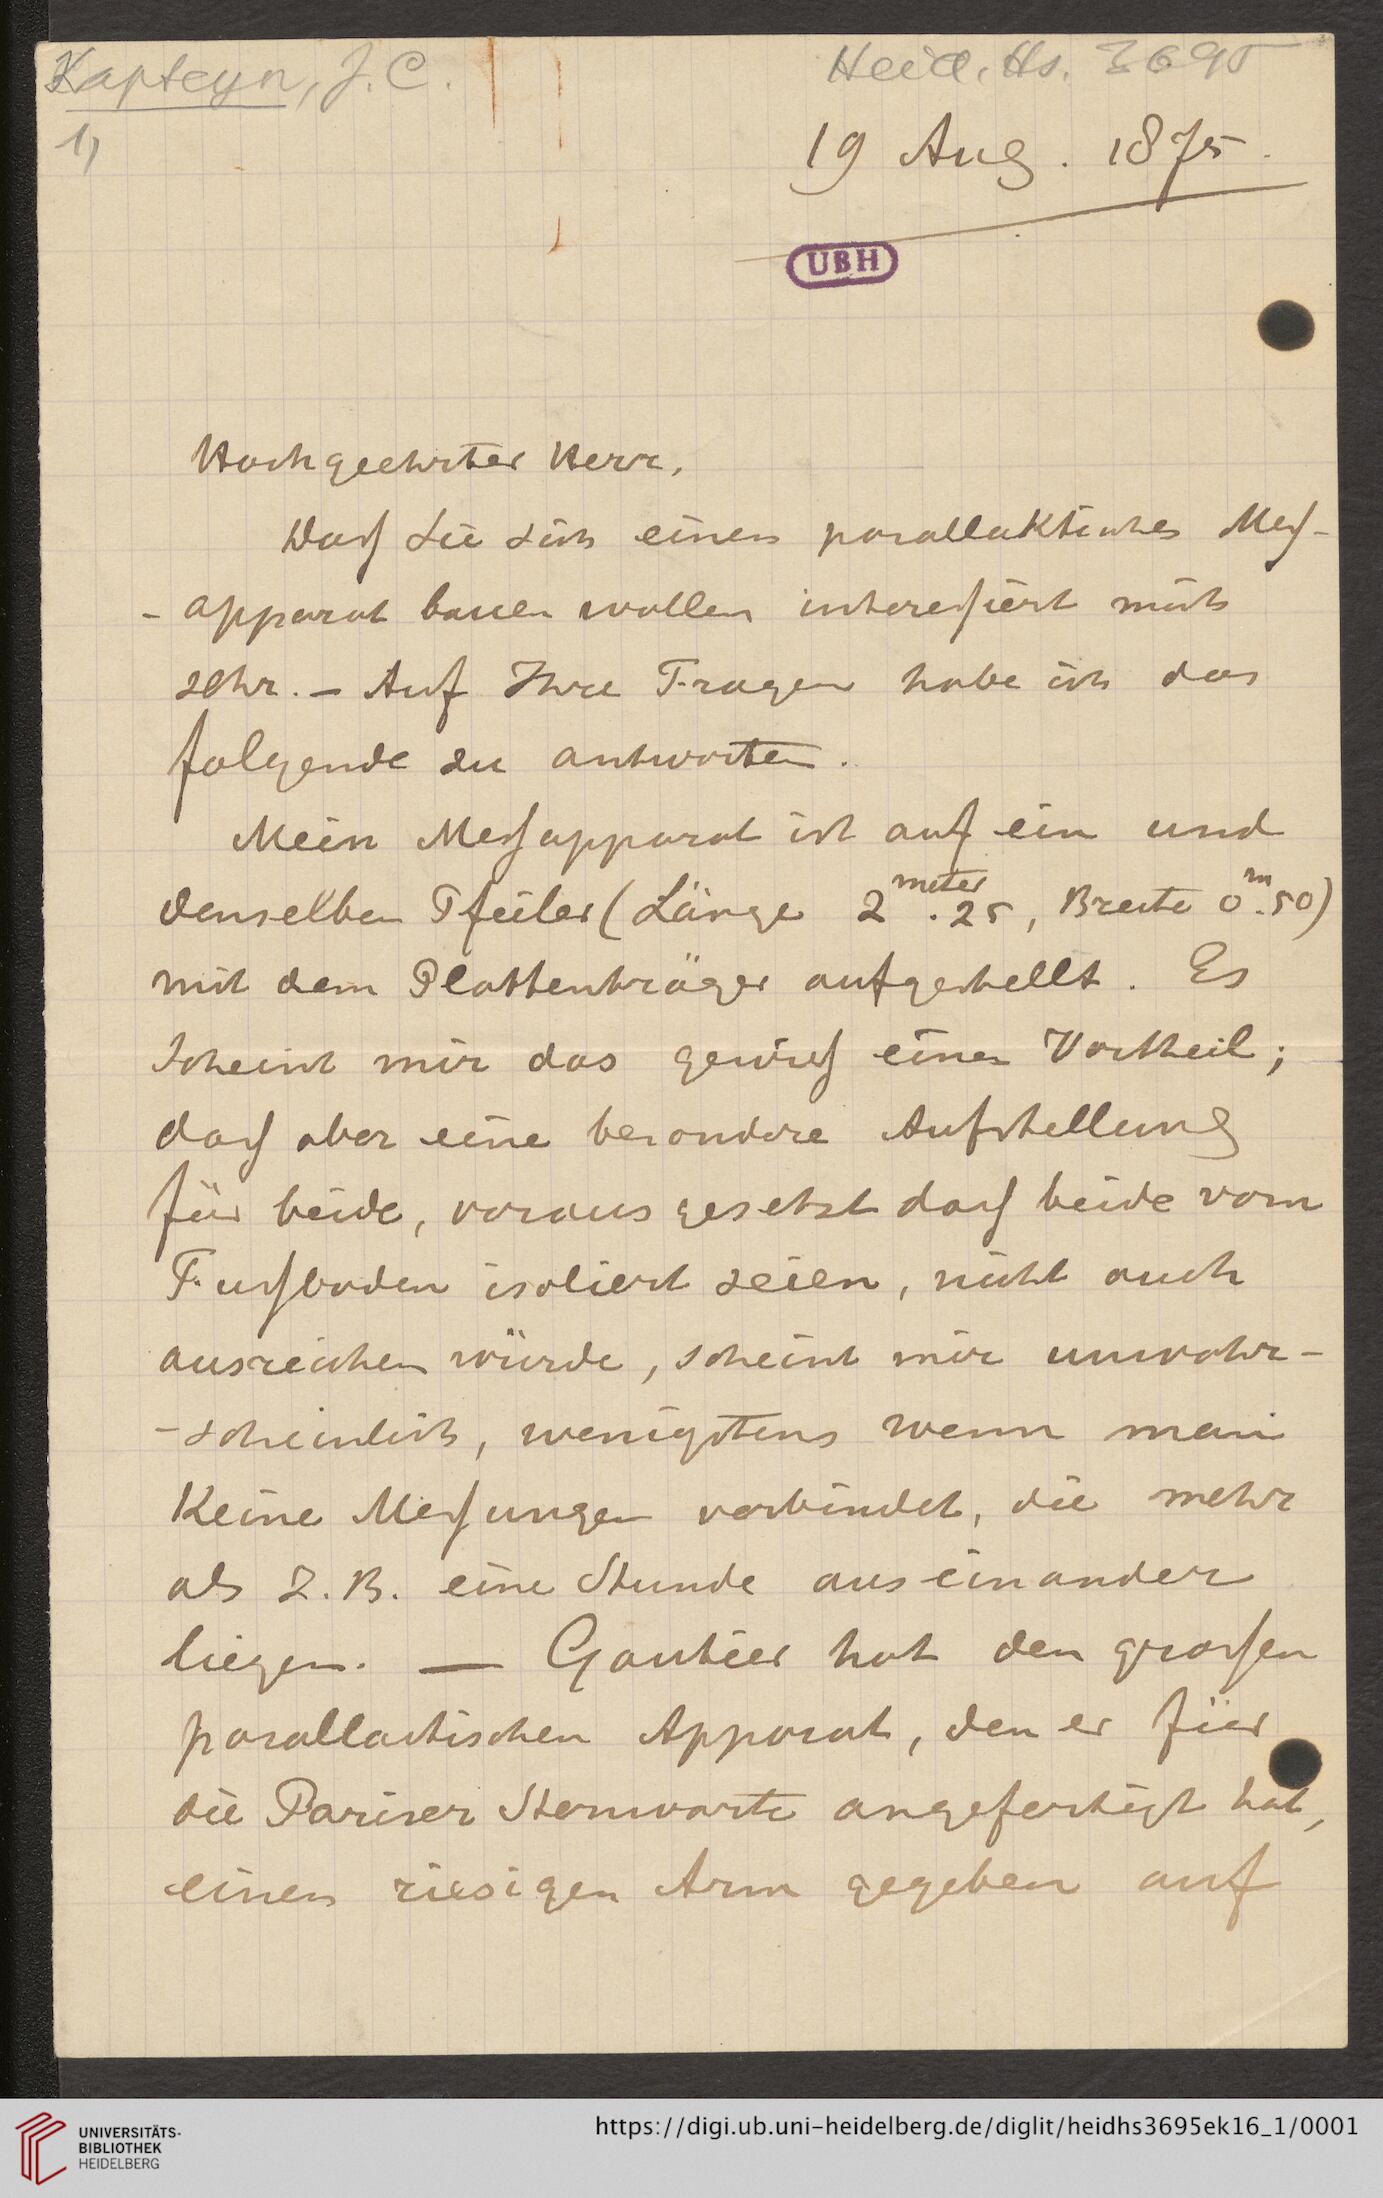 Kapteyn, J. C.
Heid. Hs. 3695
1)
19 Aug. 1875.
UBH
Hochgeehrter Herr,
Dass Sie sich einen parallaktisches Mess-
- apparat bauen wollen interessiert mich
sehr. – Auf Ihre Fragen habe ich das
folgende zu antworten.
Mein Messapparat ist auf ein und
denselben Pfeiler (Länge 2 meter . 25, Breite 0 m . 50)
mit dem Plattenträger aufgestellt. Es
scheint mir das gewiss einen Vortheil;
dass aber eine besondere Aufstellung
für beide, voraus gesetzt dass beide vom
Fussboden isoliert seien, nicht auch
ausreichen würde, scheint mir unwahr-
- scheinlich, wenigstens wenn man
Keine Messungen verbindet, die mehr
als z. B. eine Stunde aus einander
liegen. — Gautier hat den grossen
parallactischen Apparat, den er für
die Pariser Sternwarte angefertigt hat,
einen riesigen Arm gegeben auf
UNIVERSITÄTS-
BIBLIOTHEK
HEIDELBERG
https://digi.ub.uni-heidelberg.de/diglit/heidhs3695ek16_1/0001